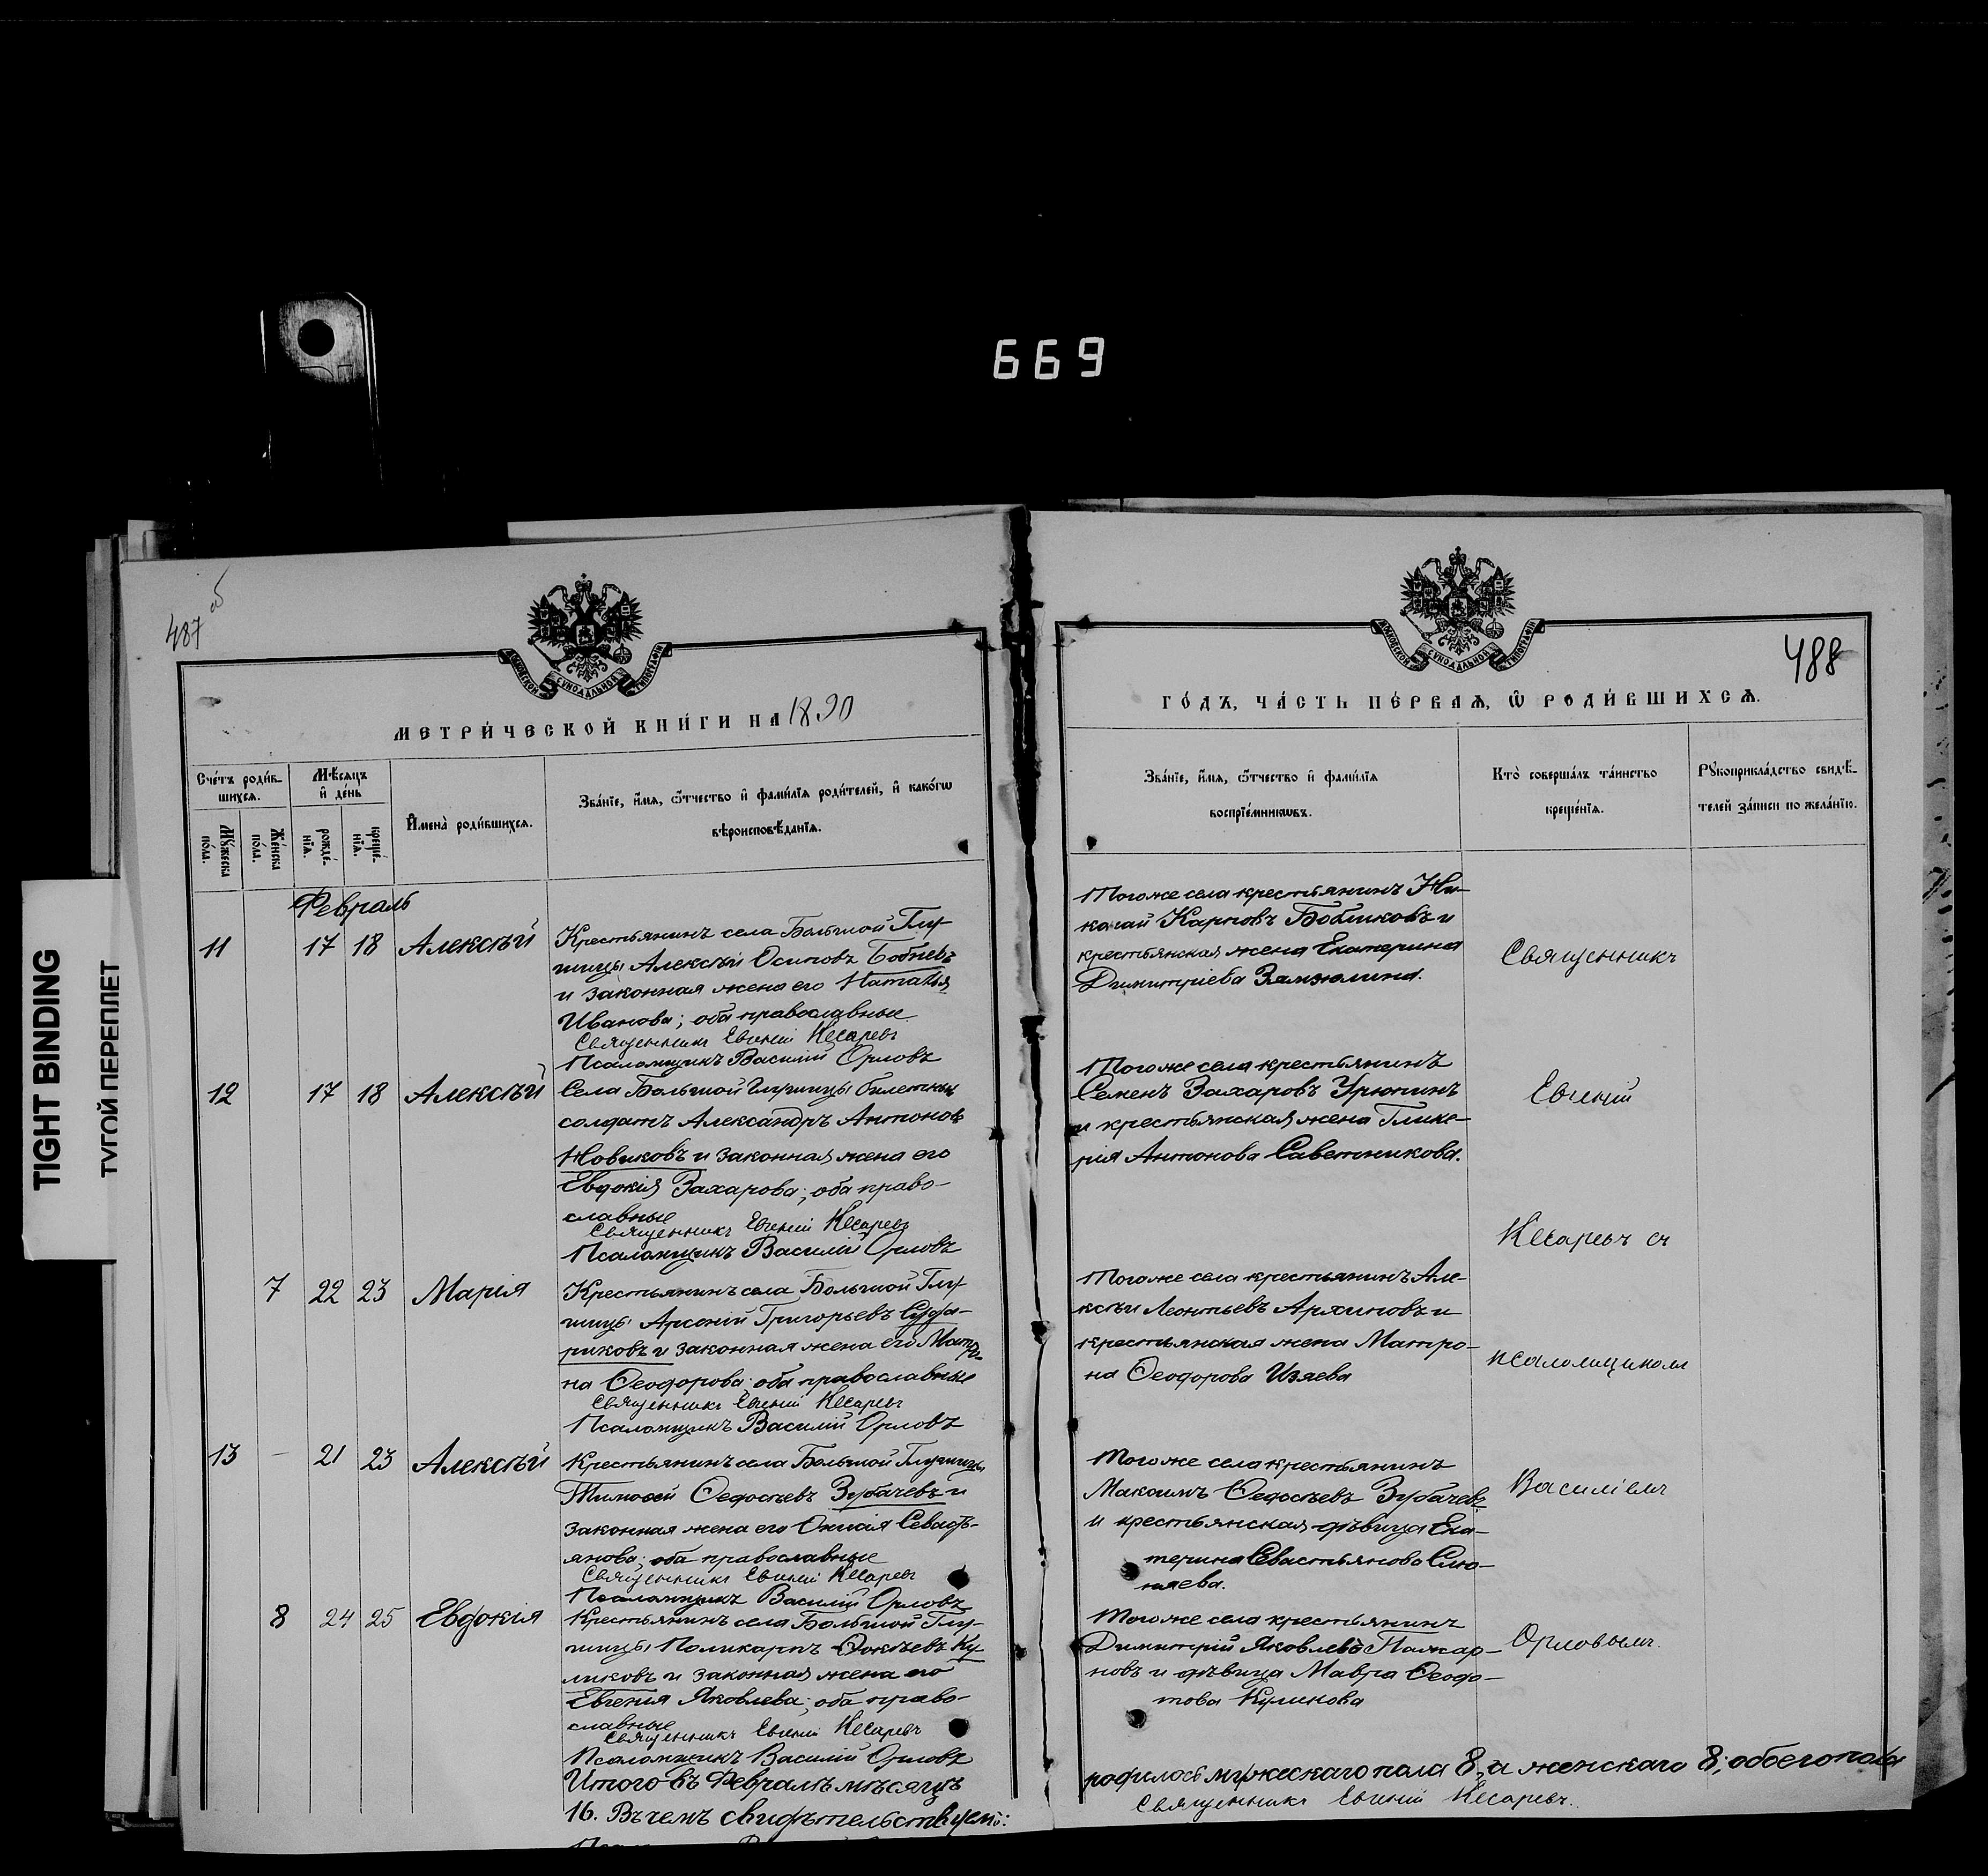 669
TIGHT BINDING
ТУГОЙ ПЕРЕПЛЕТ
487 об
МОСКОВСКОЙ СУНОДАЛЬНОЙ ТИПОГРАФІИ
МЕТРИ́ЧЕСКОЙ КНИ́ГИ НА 1890
Сче́тъ роди́в-
шихсѧ.
Мѣ́сѧцъ
и҆ де́нь
И҆мена̀ роди́вшихсѧ.
Зва́нїе, и҆́мѧ, ѻ҆́тчество и҆ фами́лїѧ роди́телей, и҆ како́гѡ
вѣроисповѣ́данїѧ.
Мꙋ́жеска
по́ла.
Же́нска
по́ла.
рожде́-
нїѧ.
креще́-
нїѧ.
Февраль
11 17 18 Алексѣй
Крестьянинъ села Большой Глу-
шицы Алексѣй Осиповъ Бобневъ
и законная жена его Наталья
Иванова; оба православные
Священникъ Евгеній Кесаревъ
Псаломщикъ Василій Орловъ
12 17 18 Алексѣй
Села Большой Глушицы билетный
солдатъ Александръ Антоновъ
Новиковъ и законная жена его
Евдокія Захарова; оба право-
славные
Священникъ Евгеній Кесаревъ
Псаломщикъ Василій Орловъ
7 22 23 Марія
Крестьянинъ села Большой Глу-
шицы Арсеній Григорьевъ Суда-
риковъ и законная жена его Матро-
на Ѳеодорова; оба православные
Священникъ Евгеній Кесаревъ
Псаломщикъ Василій Орловъ
13 - 21 23 Алексѣй
Крестьянинъ села Большой Глушицы
Тимоѳей Ѳедосѣевъ Зубачевъ и
законная жена его Севасть-
янова; оба православные
Священникъ Евгеній Кесаревъ
Псаломщикъ Василій Орловъ
8 24 25 Евдокія
Крестьянинъ села Большой Глу-
шицы Поликарпъ Ѳокѣевъ Ку-
ликовъ и законная жена его
Евгенія Яковлева; оба право-
славные
Священникъ Евгеній Кесаревъ
Псаломщикъ Василій Орловъ
Итого въ Февралѣ мѣсяцѣ
16. Въ чемъ свидѣтельствуемъ:
488
МОСКОВСКОЙ СУНОДАЛЬНОЙ ТИПОГРАФІИ
ГО́ДЪ, ЧА́СТЬ ПЕ́РВАѦ, Ѡ҆ РОДИ́ВШИХСѦ.
Зва́нїе, и҆́мѧ, ѻ҆́тчество и҆ фами́лїѧ
воспрїе́мникѡвъ.
Кто̀ соверша́лъ та́инство
креще́нїѧ.
Рꙋкоприкла́дство свидѣ́-
телей за́писи по жела́нїю.
Тогоже села крестьянинъ Ни-
колай Карповъ Бобликовъ и
крестьянская жена Екатерина
Димитріева Замзюлина.
Тогоже села крестьянинъ
Семенъ Захаровъ Урюпинъ
и крестьянская жена Глике-
рія Антонова Саветникова.
Тогоже села крестьянинъ Але-
ксѣй Леонтьевъ Архиповъ и
крестьянская жена Матро-
на Ѳеодорова Изяева
Тогоже села крестьянинъ
Максимъ Ѳедосѣевъ Зубачевъ
и крестьянская дѣвица Ека-
терина Севастьянова Слю-
няева.
Тогоже села крестьянинъ
Димитрій Яковлевъ
новъ и дѣвица Мавра Ѳеодо-
това Куликова
Священникъ
Евгеній
Кесаревъ съ
псаломщикомъ
Василіемъ
Орловымъ.
родилось мужескаго пола 8, и женскаго 8; обоего пола
Священникъ Евгеній Кесаревъ.